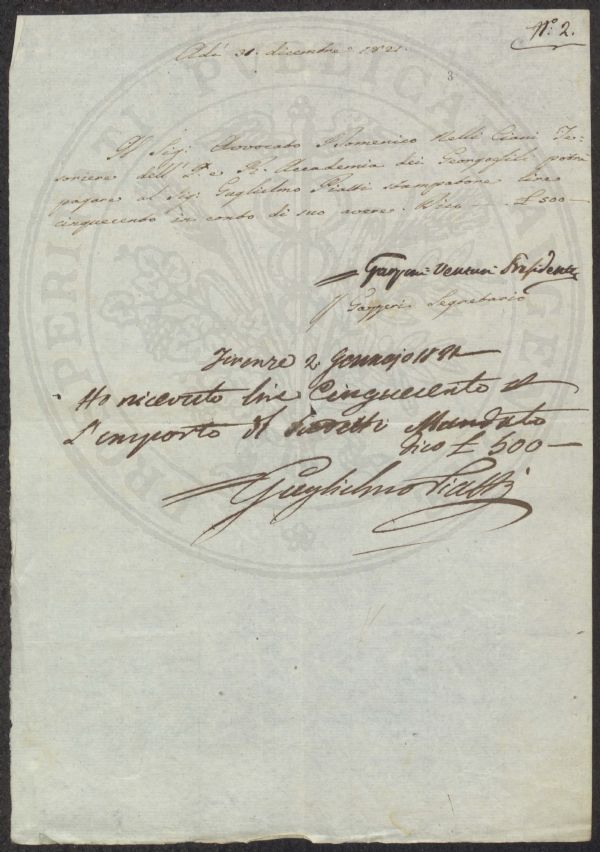 N.º 2.
Adì 31. dicembre 1821.
3
Il Sig: Avvocato Domenico Nelli Ciani Te-
soriere dell' I. e R. Accademia dei Georgofili potrà
pagare al Sig: Guglielmo Piatti stampatore lire
cinquecento in conto di suo avere. Dico £ 500 —
Venturi Presidente
Gazzeri Segretario
Firenze 2 Gennajo 1822
Ho ricevuto lire Cinquecento
L'importo Mandato
Dico £ 500 —
Guglielmo Piatti
PROSPERITATI PUBLICAE AUGENDAE